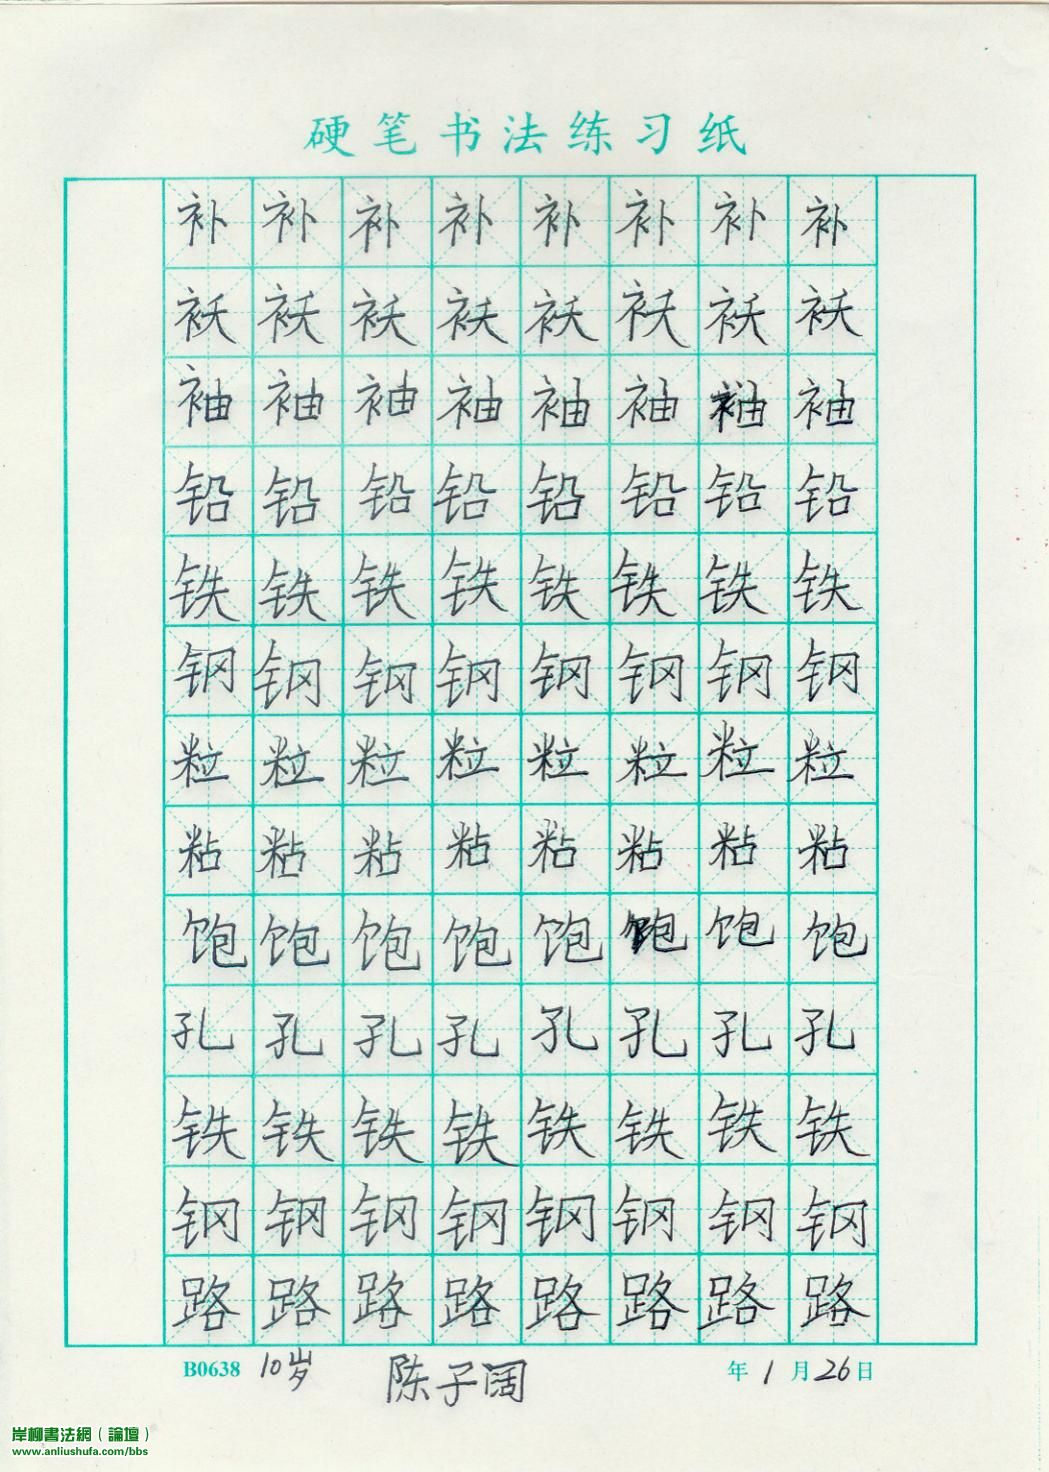 硬笔书法练习纸
补补补补补补补补
袄袄袄袄袄袄袄袄
袖袖袖袖袖袖袖袖
铅铅铅铅铅铅铅铅
铁铁铁铁铁铁铁铁
钢钢钢钢钢钢钢钢
粒粒粒粒粒粒粒粒
粘粘粘粘粘粘粘粘
饱饱饱饱饱饱饱饱
孔孔孔孔孔孔孔孔
铁铁铁铁铁铁铁铁
钢钢钢钢钢钢钢钢
路路路路路路路路
B0638 10岁 陈子阔 年1月26日
岸柳書法網(論壇)
www.anliushufa.com/bbs